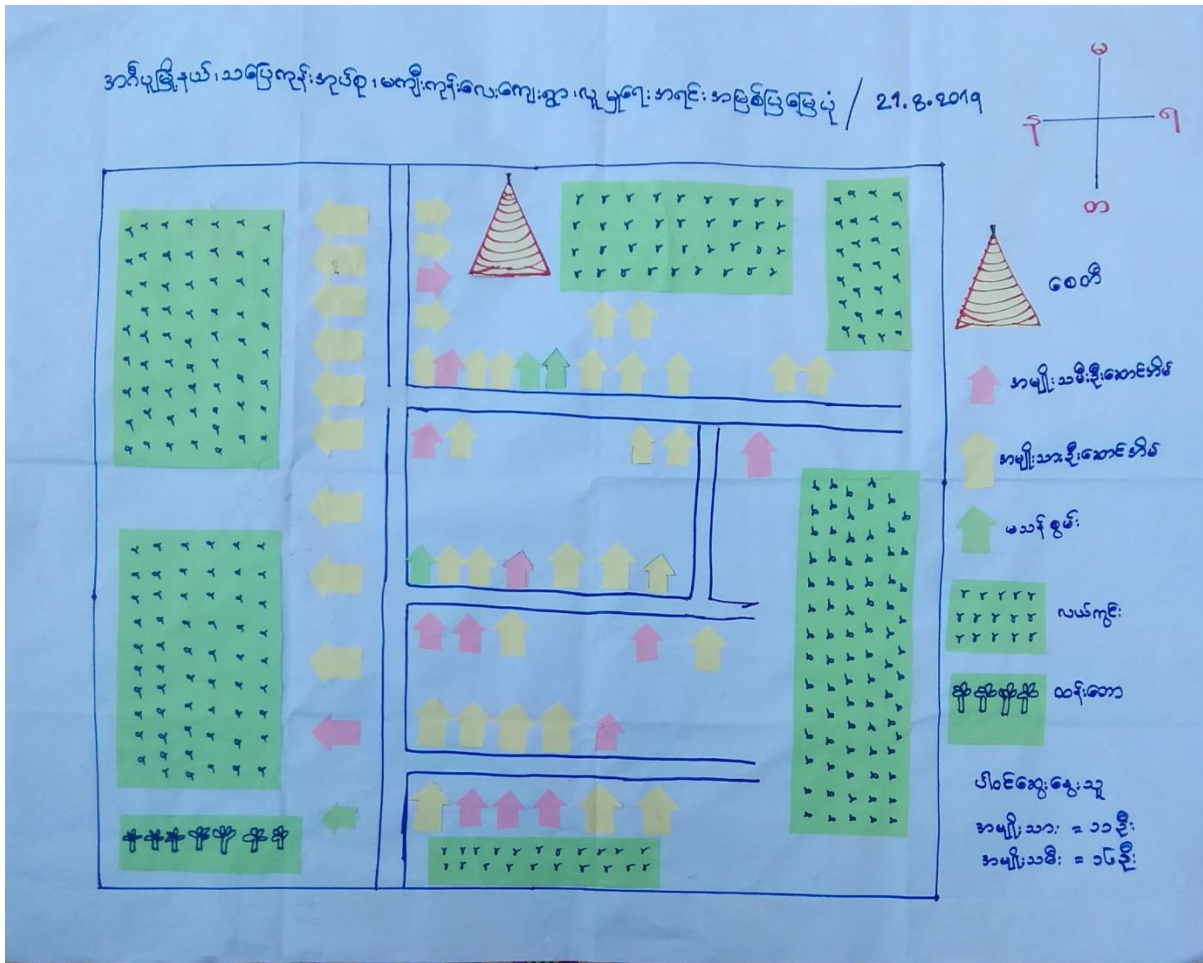 အင်္ဂပူမြို့နယ်၊သပြေကုန်းအုပ်စု၊မကျီးကုန်းလေးကျေးရွာ၊လူမှုရေးအရင်းအမြစ်ပြမြေပုံ / 21.8.2019
မ
န ရ
တ
စေတီ
အမျိုးသမီးဦးဆောင်အိမ်
အမျိုးသားဦးဆောင်အိမ်
မသန်စွမ်း
လယ်ကွင်း
ထန်းတော
ပါဝင်ဆွေးနွေးသူ
အမျိုးသား = ၁၁ဦး
အမျိုးသမီး = ၁၆ဦး